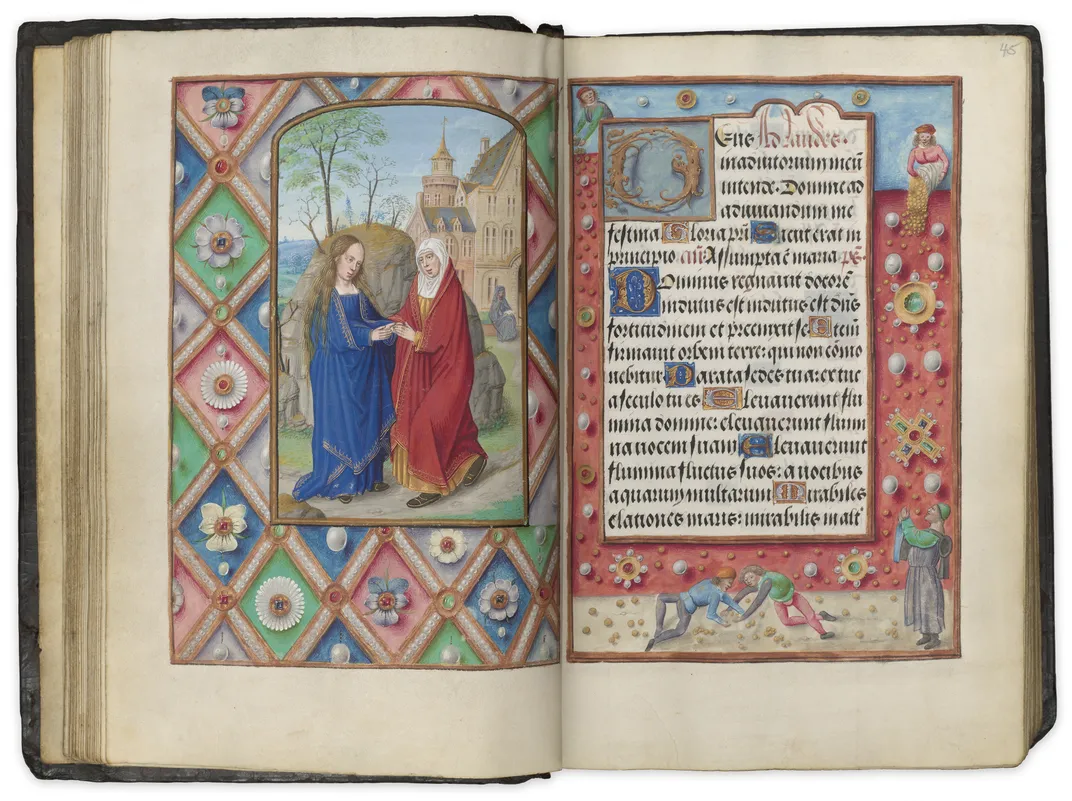 45
Deus Ad laudes
in adiutorium meū
intende. Domine ad
adiuuandum me
festina Gloria pr̄i Sicut erat in
principio. añ. Assumpta ē maria ps.
Dominus regnauit decorē
indutus est indutus est dn̄s
fortitudinem et precinxit se Etenī
firmauit orbem terre: qui non cōmo
uebitur Parata sedes tua: ex tūc
a seculo tu es Eleuauerunt flu
mina domine: eleuauerunt flumi
na uocem suam Eleuauerunt
flumina fluctus suos: a uocibus
aquarum multarum Mirabiles
elationes maris: mirabilis in alt